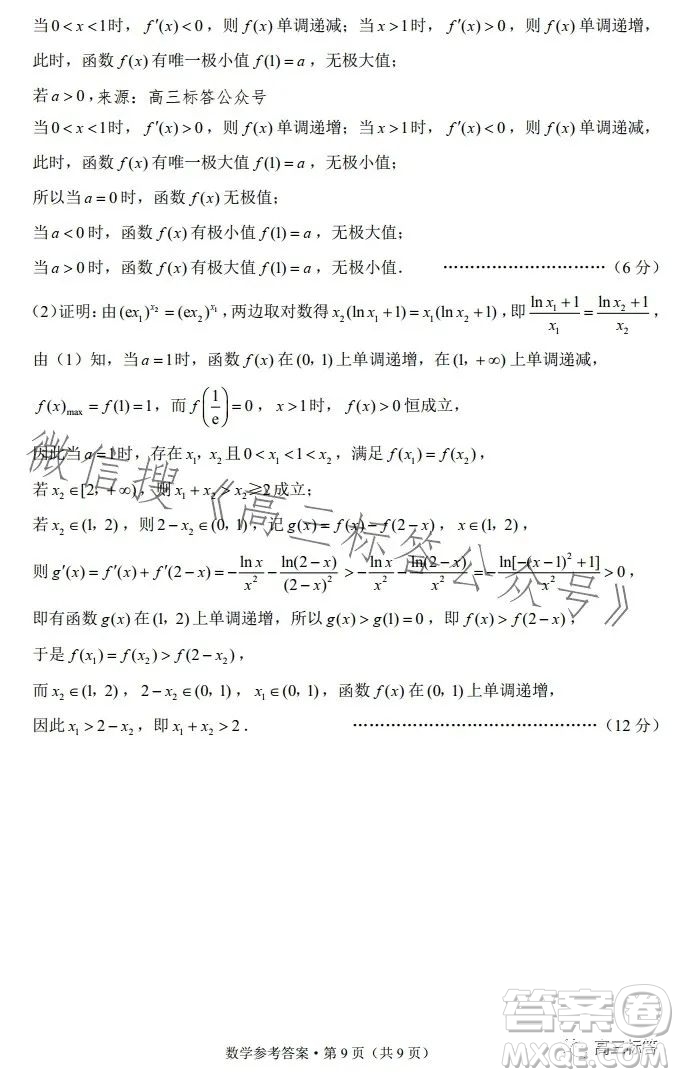 当0<x<1时，f′(x)<0，则f(x)单调递减；当x>1时，f′(x)>0，则f(x)单调递增，
此时，函数f(x)有唯一极小值f(1)=a，无极大值；
若a>0，来源：高三标答公众号
当0<x<1时，f′(x)>0，则f(x)单调递增；当x>1时，f′(x)<0，则f(x)单调递减，
此时，函数f(x)有唯一极大值f(1)=a，无极小值；
所以当a=0时，函数f(x)无极值；
当a<0时，函数f(x)有极小值f(1)=a，无极大值；
当a>0时，函数f(x)有极大值f(1)=a，无极小值．…………………………（6分）
（2）证明：由(ex₁)^{x₂}=(ex₂)^{x₁}，两边取对数得x₂(ln x₁+1)=x₁(ln x₂+1)，即(ln x₁+1)/x₁=(ln x₂+1)/x₂，
由（1）知，当a=1时，函数f(x)在(0，1)上单调递增，在(1，+∞)上单调递减，
f(x)max=f(1)=1，而f(1/e)=0，x>1时，f(x)>0恒成立，
因此当a=1时，存在x₁，x₂且0<x₁<1<x₂，满足f(x₁)=f(x₂)，
若x₂∈[2，+∞)，则x₁+x₂>x₂≥2成立；
若x₂∈(1，2)，则2−x₂∈(0，1)，记g(x)=f(x)−f(2−x)，x∈(1，2)，
则g′(x)=f′(x)+f′(2−x)=−ln x/x²−ln(2−x)/(2−x)²>−ln x/x²−ln(2−x)/x²=−ln[−(x−1)²+1]/x²>0，
即有函数g(x)在(1，2)上单调递增，所以g(x)>g(1)=0，即f(x)>f(2−x)，
于是f(x₁)=f(x₂)>f(2−x₂)，
而x₂∈(1，2)，2−x₂∈(0，1)，x₁∈(0，1)，函数f(x)在(0，1)上单调递增，
因此x₁>2−x₂，即x₁+x₂>2．………………………………………（12分）
微信搜《高三标答公众号》
数学参考答案·第9页（共9页）
答案圈
高三标答
MXQE.COM